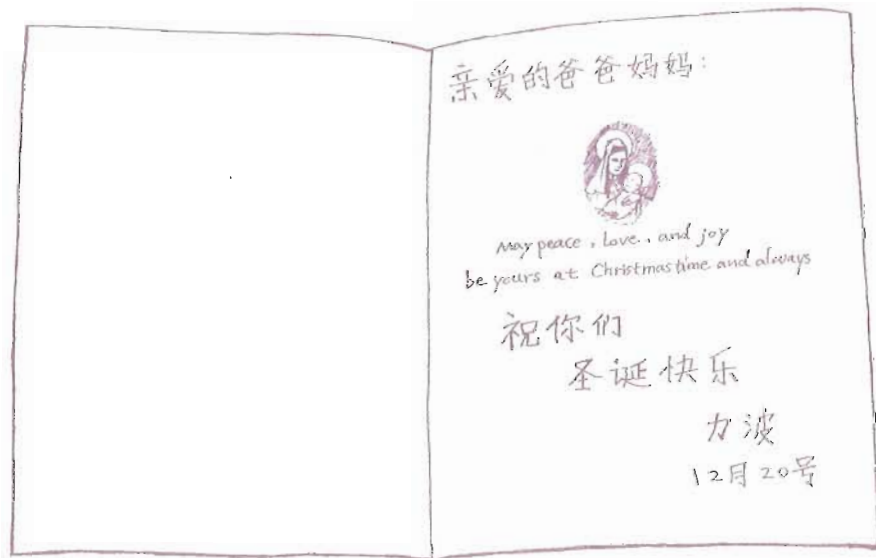 亲爱的爸爸妈妈:
May peace, love, and joy
be yours at Christmastime and always
祝你们
圣诞快乐
力波
12月20号